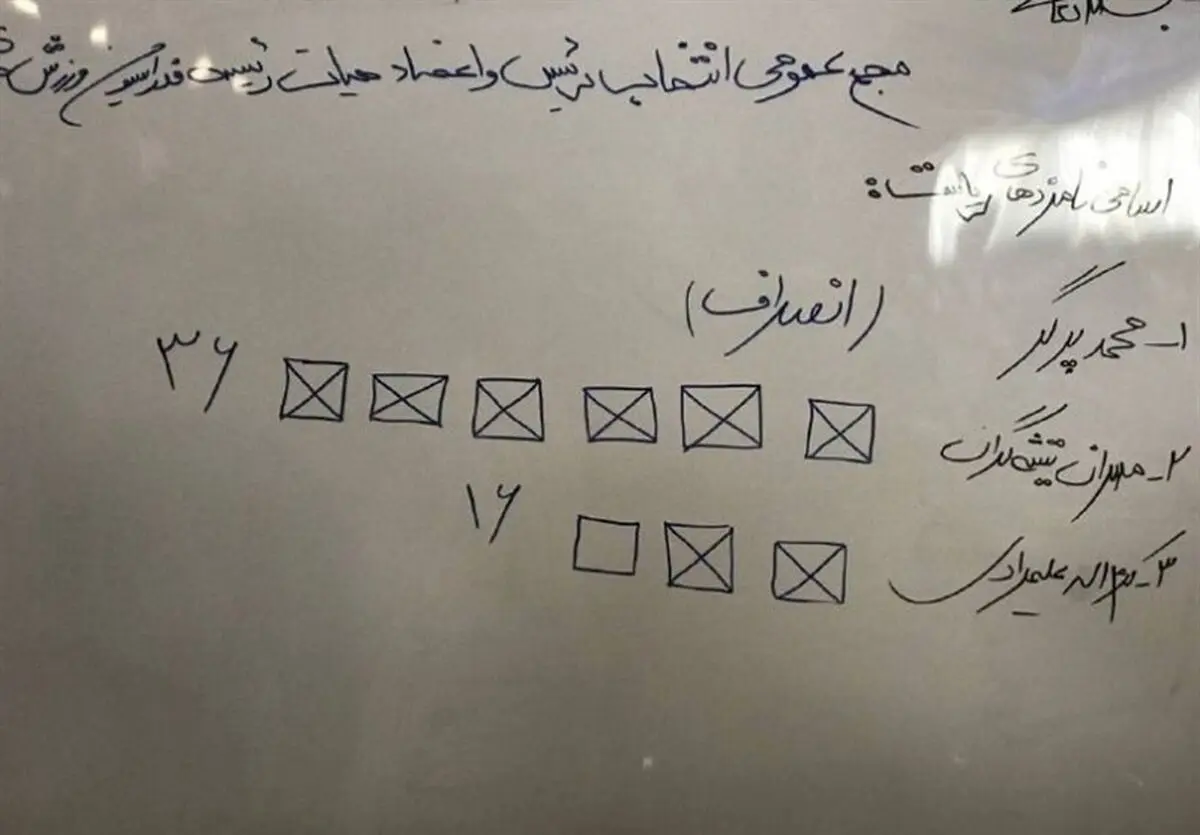 مجمع عمومی انتخاب رئیس و اعضاد هیات رئیسه فدراسیون ورزش
اسامی نامزدهای ریاست:
۱- محمد پرگر (انصراف)
۲- مهران تیشه‌گران ۳۶
۳- کرم‌اله علیمرادی ۱۶